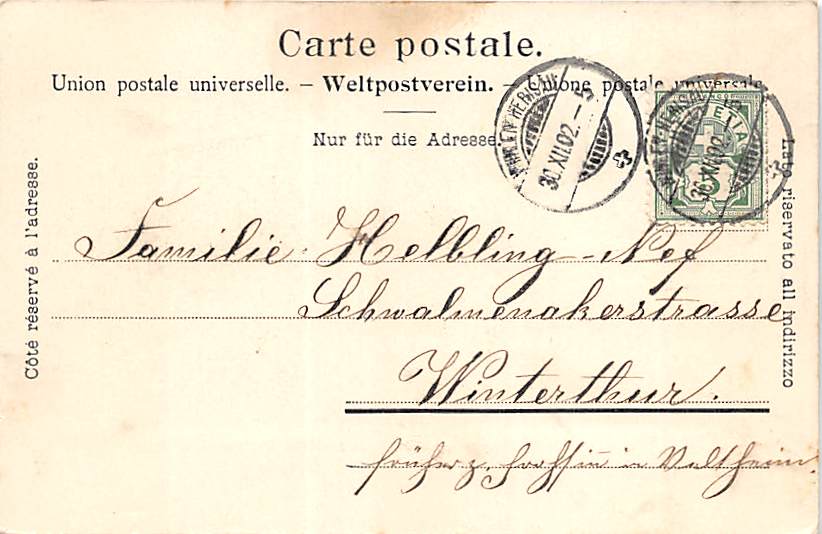 Carte postale.
Union postale universelle. – Weltpostverein. – Unione postale universale
Nur für die Adresse.
Côté réservé à l'adresse.
Lato riservato all indirizzo
HERISAU
30.XII.02.–5
HERISAU
30.XII.02
HELVETIA
5
Familie Helbling-Nef
Schwalmenakerstrasse
Winterthur.
früher z. in Veltheim.